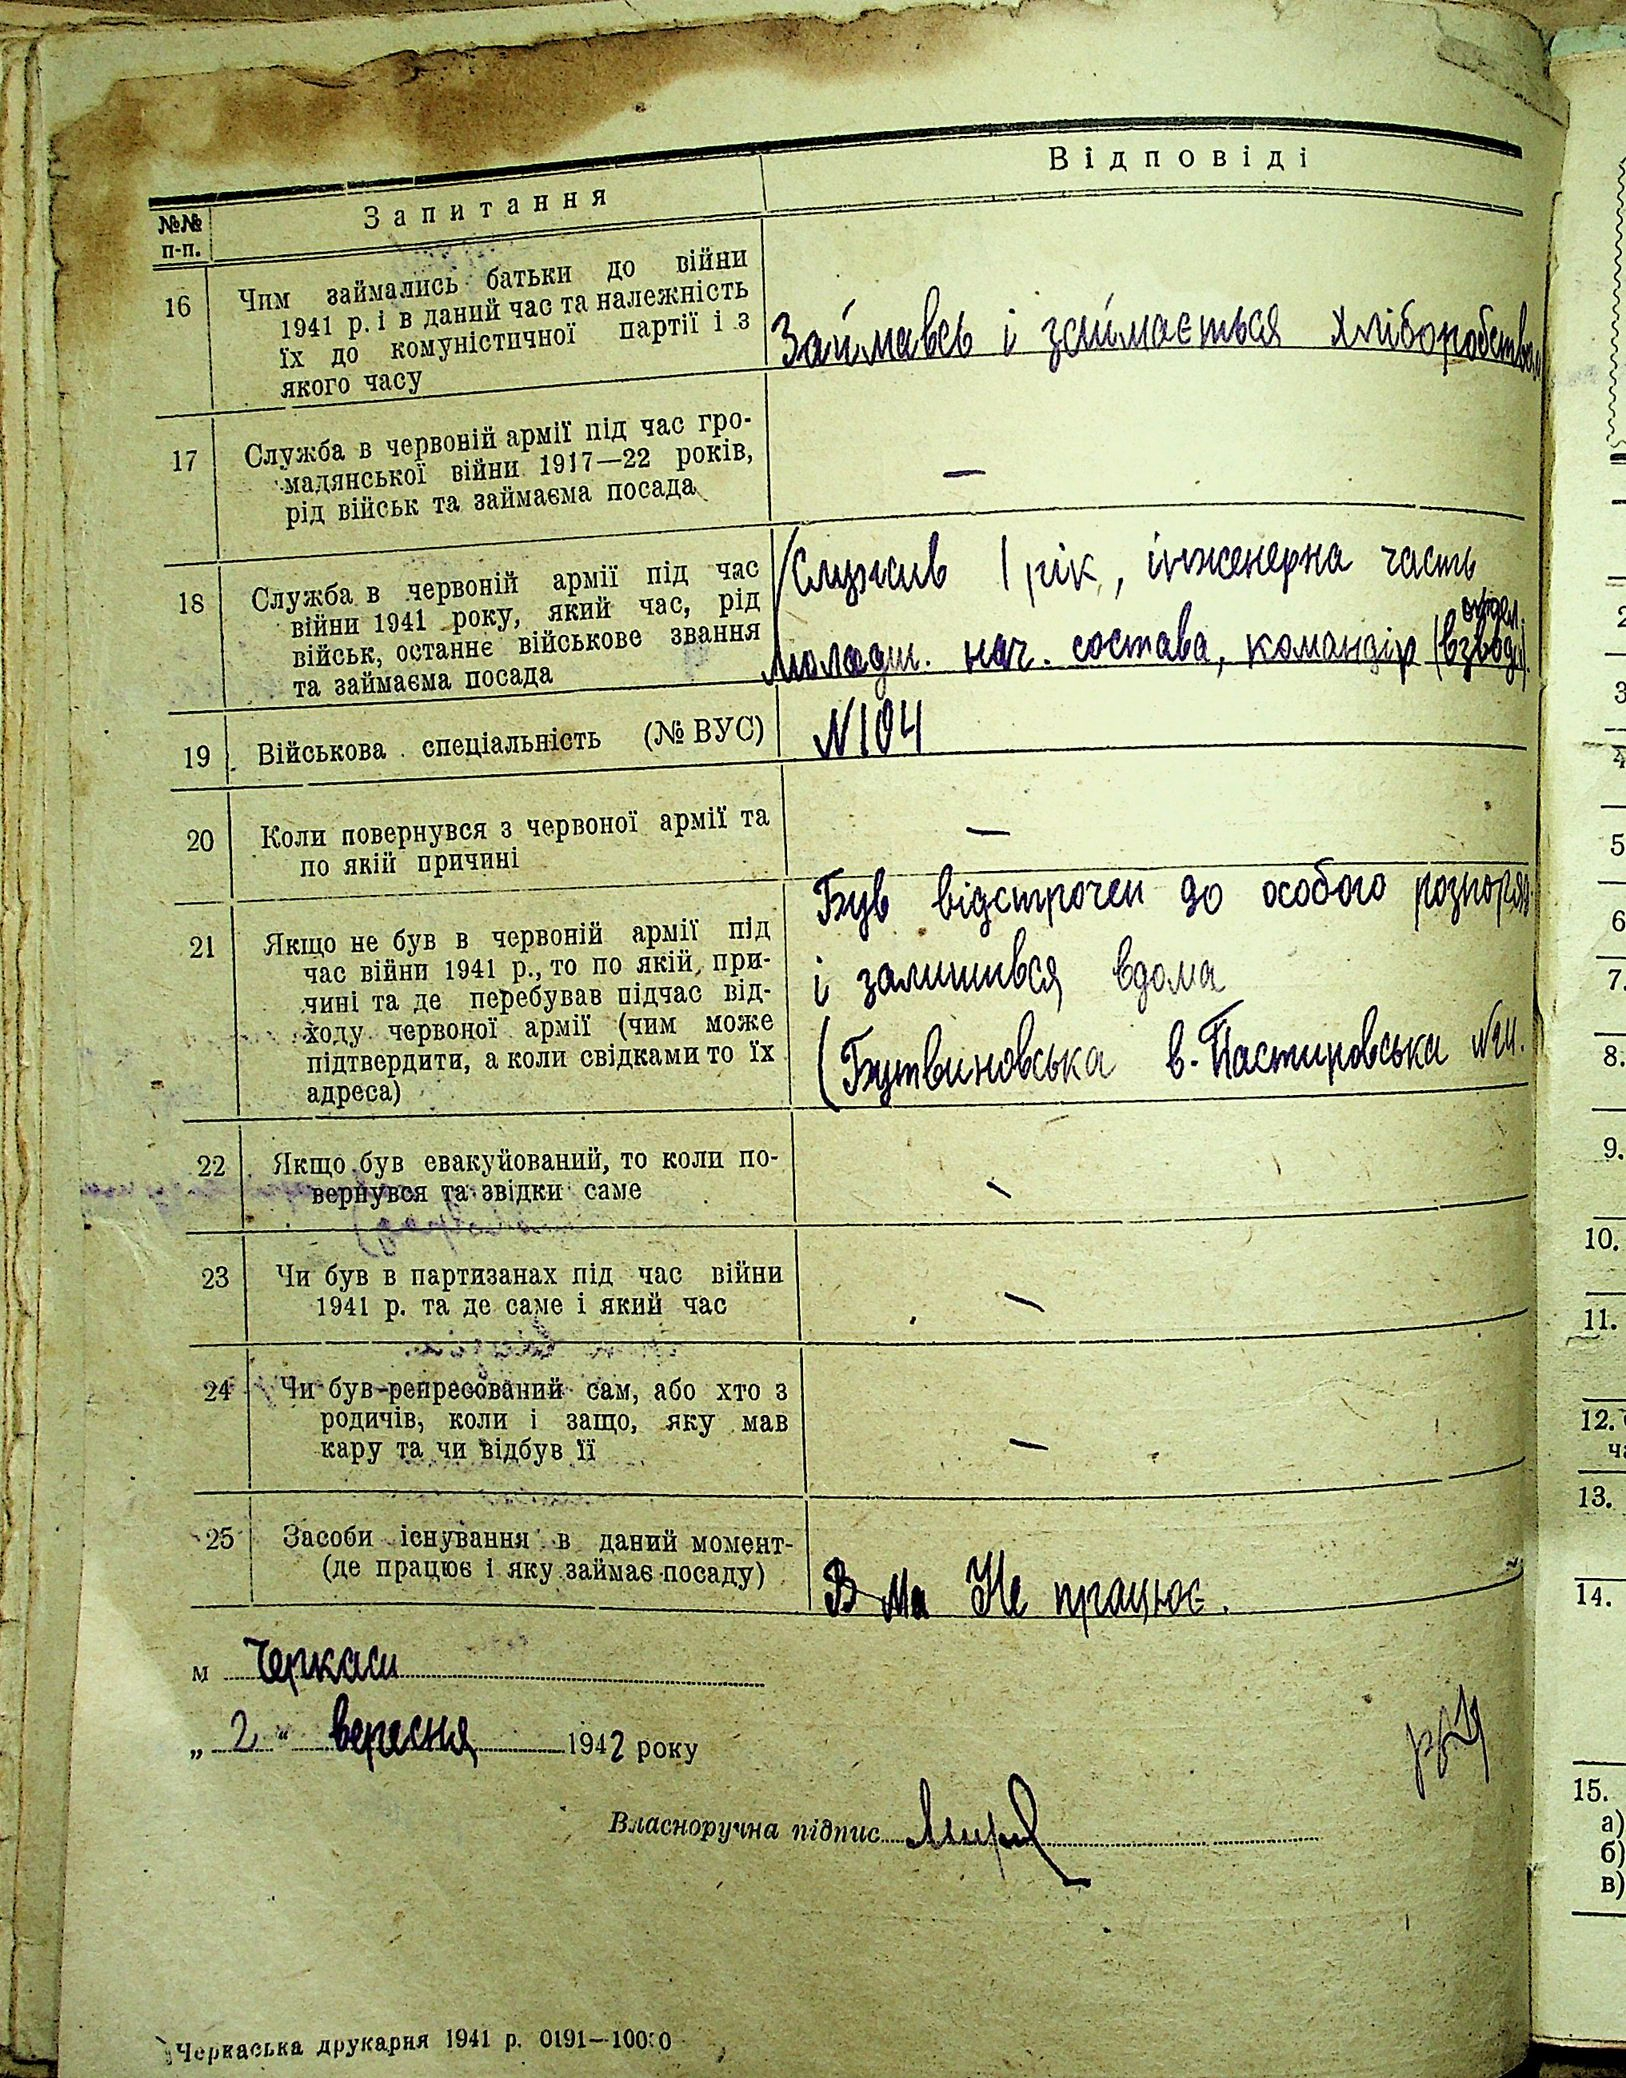 №№ п-п.
Запитання
Відповіді
16
Чим займались батьки до війни
1941 р. і в даний час та належність
їх до комуністичної партії і з
якого часу
Займавсь і займається хліборобством
17
Служба в червоній армії під час гро-
мадянської війни 1917—22 років,
рід військ та займаєма посада
—
18
Служба в червоній армії під час
війни 1941 року, який час, рід
військ, останнє військове звання
та займаєма посада
Служив 1 рік, інженерна часть
отдел.
молодш. нач. состава, командір (взвода).
19
Військова спеціальність (№ ВУС)
N 104
20
Коли повернувся з червоної армії та
по якій причині
—
21
Якщо не був в червоній армії під
час війни 1941 р., то по якій при-
чині та де перебував підчас від-
ходу червоної армії (чим може
підтвердити, а коли свідками то їх
адреса)
Був відстрочен до особого розпоряд.
і залишився вдома
(Бутвиновська в. Пастировська
22
Якщо був евакуйований, то коли по-
вернувся та звідки саме
—
23
Чи був в партизанах під час війни
1941 р. та де саме і який час
—
24
Чи був репресований сам, або хто з
родичів, коли і защо, яку мав
кару та чи відбув її
—
25
Засоби існування в даний момент-
(де працює і яку займає посаду)
Не працює.
м Черкаси
„ 2 “ вересня 1942 року
Власноручна підпис
Черкаська друкарня 1941 р. 0191—10000
2
3
4
5
6
7.
8.
9.
10.
11.
12.
ча
13.
14.
15.
а)
б)
в)